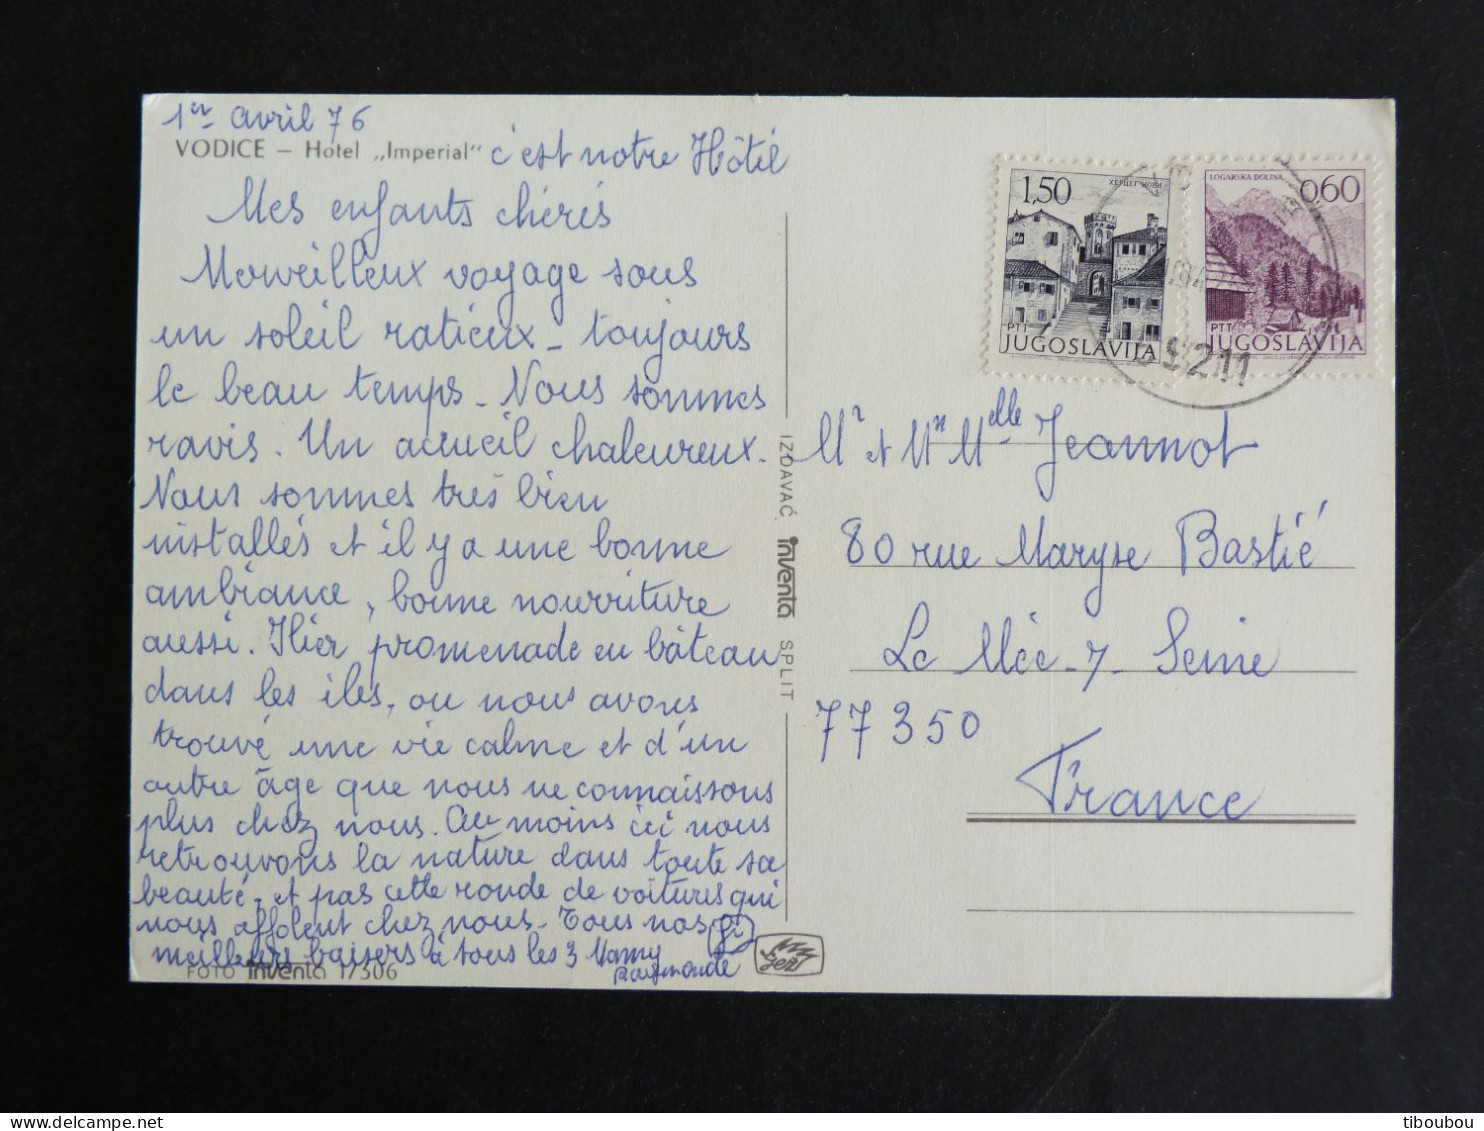 1er avril 76
VODICE – Hotel „Imperial" c'est notre Hôtel
Mes enfants chéris
Merveilleux voyage sous
un soleil radieux - toujours
le beau temps. Nous sommes
ravis. Un accueil chaleureux.
Nous sommes très bien
installés et il y a une bonne
ambiance, bonne nourriture
aussi. Hier promenade en bâteau
dans les îles, ou nous avons
trouvé une vie calme et d'un
autre âge que nous ne connaissons
plus chez nous. Au moins ici nous
retrouvons la nature dans toute sa
beauté, et pas cette ronde de voitures qui
nous affolent chez nous - Tous nos
meilleurs baisers à tous les 3 Mamy
Raymonde
FOTO inventa 17506
IZDAVAČ inventa SPLIT
1,50
ХЕРЦЕГ НОВИ
PTT
JUGOSLAVIJA
LOGARSKA DOLINA
0,60
PTT
JUGOSLAVIJA
Mr et Mme Melle Jeannot
80 rue Maryse Bastié
Le Mée-7-Seine
77350
France
tiboubou